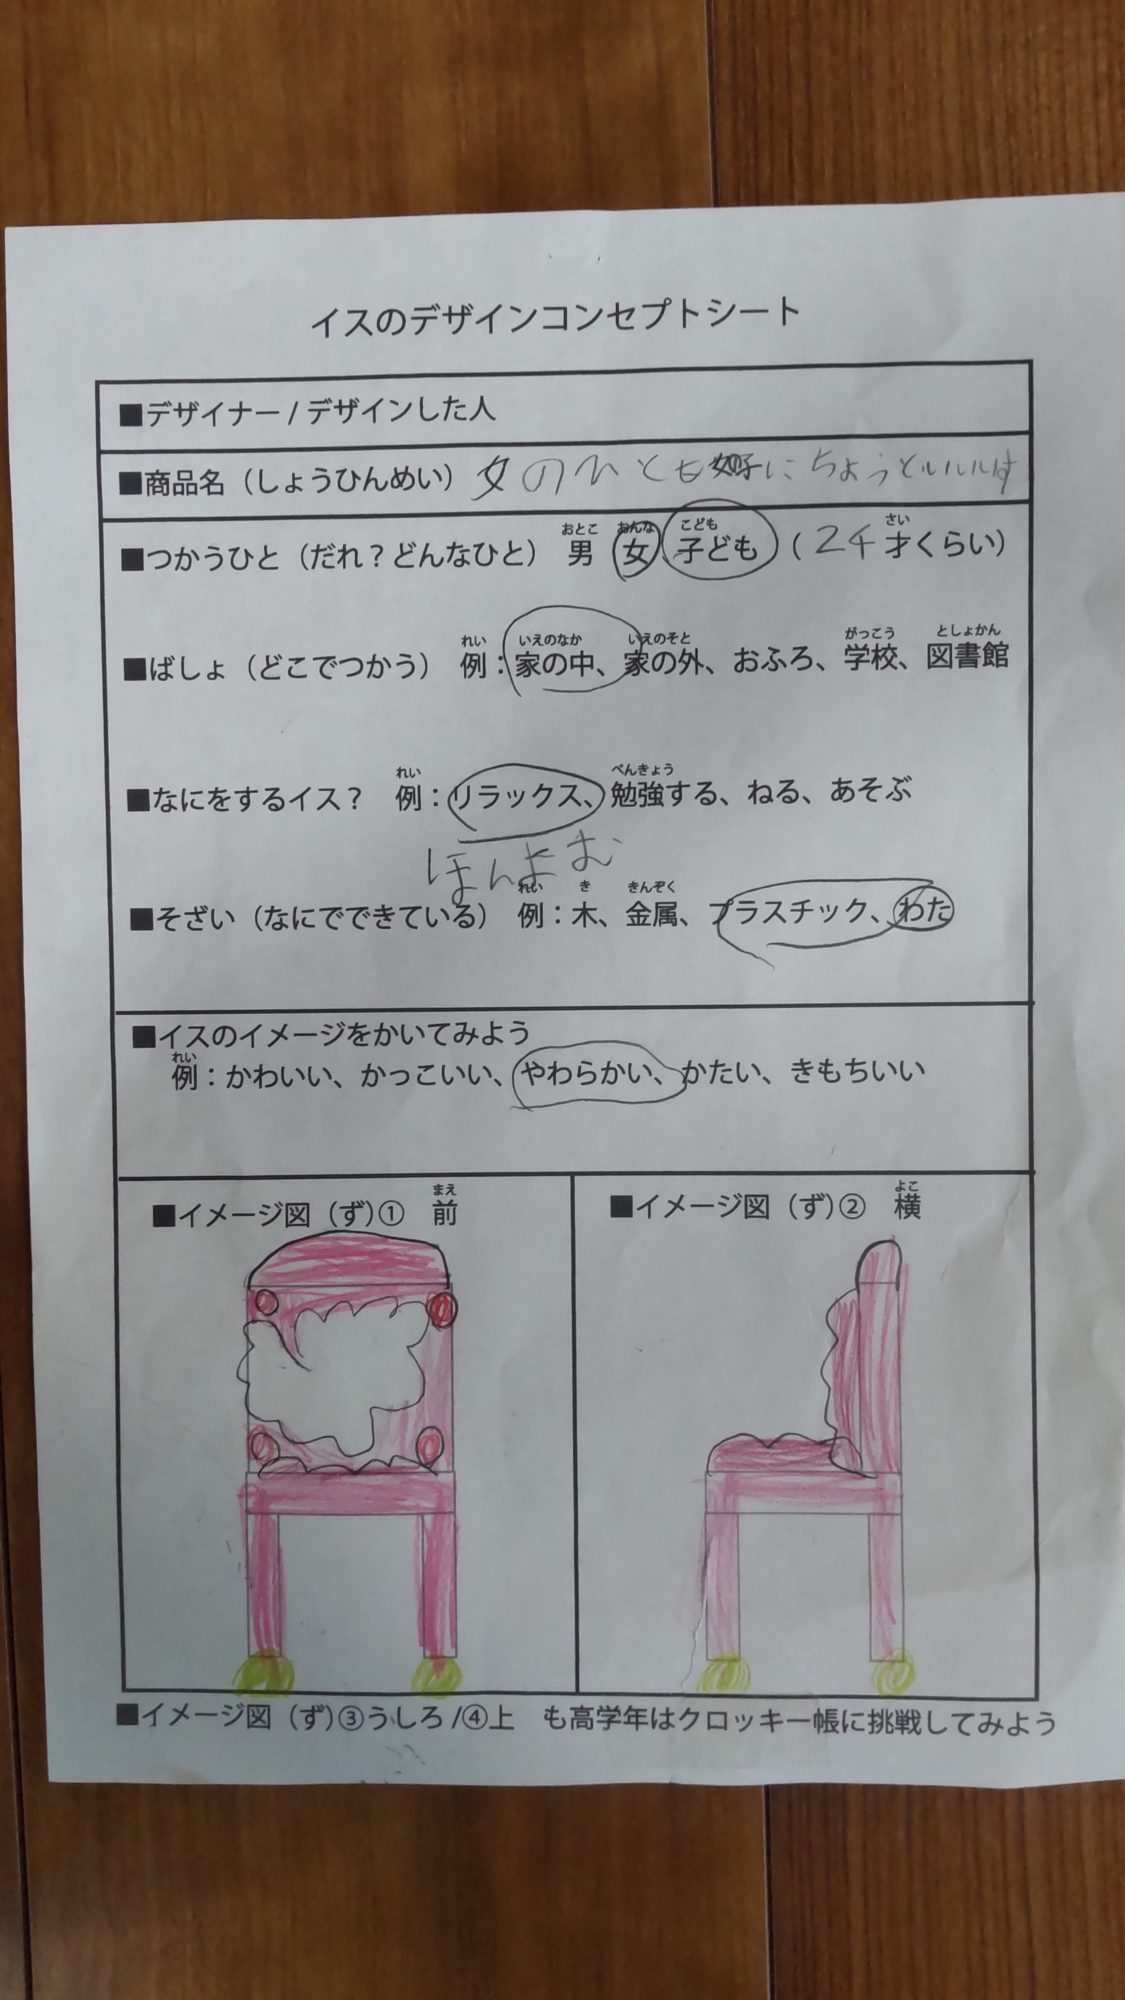 イスのデザインコンセプトシート
■デザイナー/デザインした人
■商品名（しょうひんめい）女のひとも女子にちょうどいい
おとこ おんな こども さい
■つかうひと（だれ？どんなひと） 男 女 子ども （24才くらい）
れい いえのなか いえのそと がっこう としょかん
■ばしょ（どこでつかう） 例：家の中、家の外、おふろ、学校、図書館
れい べんきょう
■なにをするイス？ 例：リラックス、勉強する、ねる、あそぶ
ほんよむ
れい き きんぞく
■そざい（なにでできている） 例：木、金属、プラスチック、わた
■イスのイメージをかいてみよう
れい
例：かわいい、かっこいい、やわらかい、かたい、きもちいい
まえ
■イメージ図（ず）① 前
よこ
■イメージ図（ず）② 横
■イメージ図（ず）③うしろ/④上 も高学年はクロッキー帳に挑戦してみよう